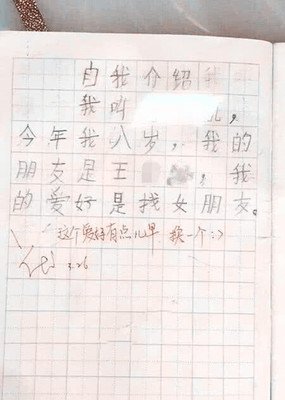 自我介绍
我叫
今年我八岁，我的
朋友是王，我
的爱好是找女朋友。
这个爱好有点儿早 换一个:)
3.26